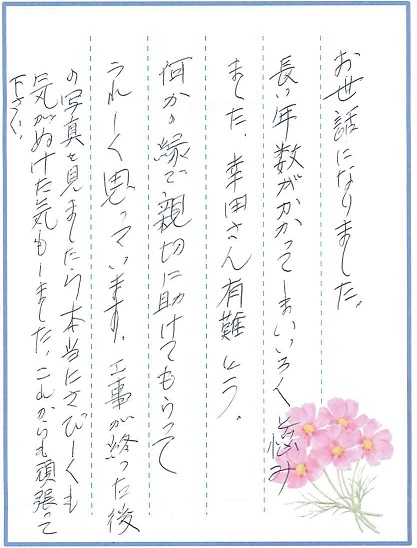 お世話になりました。
長い年数がかかってしまいいろく と悩み
ました。幸田さん有難とう。
何かの縁で親切に助けてもらって
うれしく思っています。工事が終った後
の写真を見ましたら本当にさびしくも
気がぬけた気もしました。これからも頑張って
下さい。